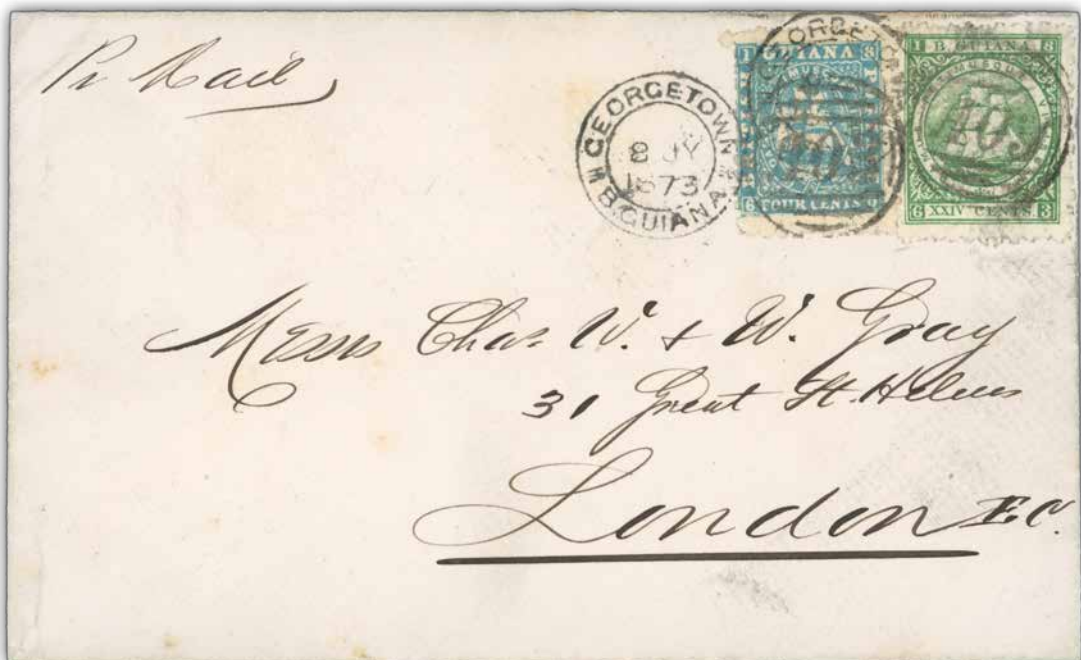 Pr Mail
GEORGETOWN
8 JY
1873
B. GUIANA
GUIANA
FOUR CENTS
B. GUIANA
XXIV CENTS
Messrs Chas W. & W. Gray
31 Great St. Helens
London E.C.